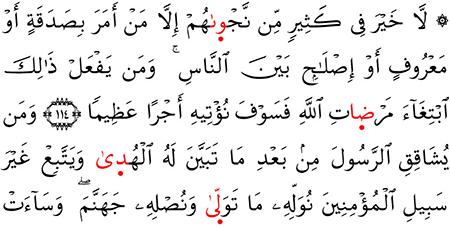 ۞ لَّا خَيْرَ فِى كَثِيرٍ مِّن نَّجْوٜىٰهُمْ إِلَّا مَنْ أَمَرَ بِصَدَقَةٍ أَوْ
مَعْرُوفٍ أَوْ إِصْلَٰحٍۭ بَيْنَ ٱلنَّاسِ ۚ وَمَن يَفْعَلْ ذَٰلِكَ
ٱبْتِغَآءَ مَرْضَاتِ ٱللَّهِ فَسَوْفَ نُؤْتِيهِ أَجْرًا عَظِيمًا ﴿١١٤﴾ وَمَن
يُشَاقِقِ ٱلرَّسُولَ مِنۢ بَعْدِ مَا تَبَيَّنَ لَهُ ٱلْهُدَىٰ وَيَتَّبِعْ غَيْرَ
سَبِيلِ ٱلْمُؤْمِنِينَ نُوَلِّهِۦ مَا تَوَلَّىٰ وَنُصْلِهِۦ جَهَنَّمَ ۖ وَسَآءَتْ